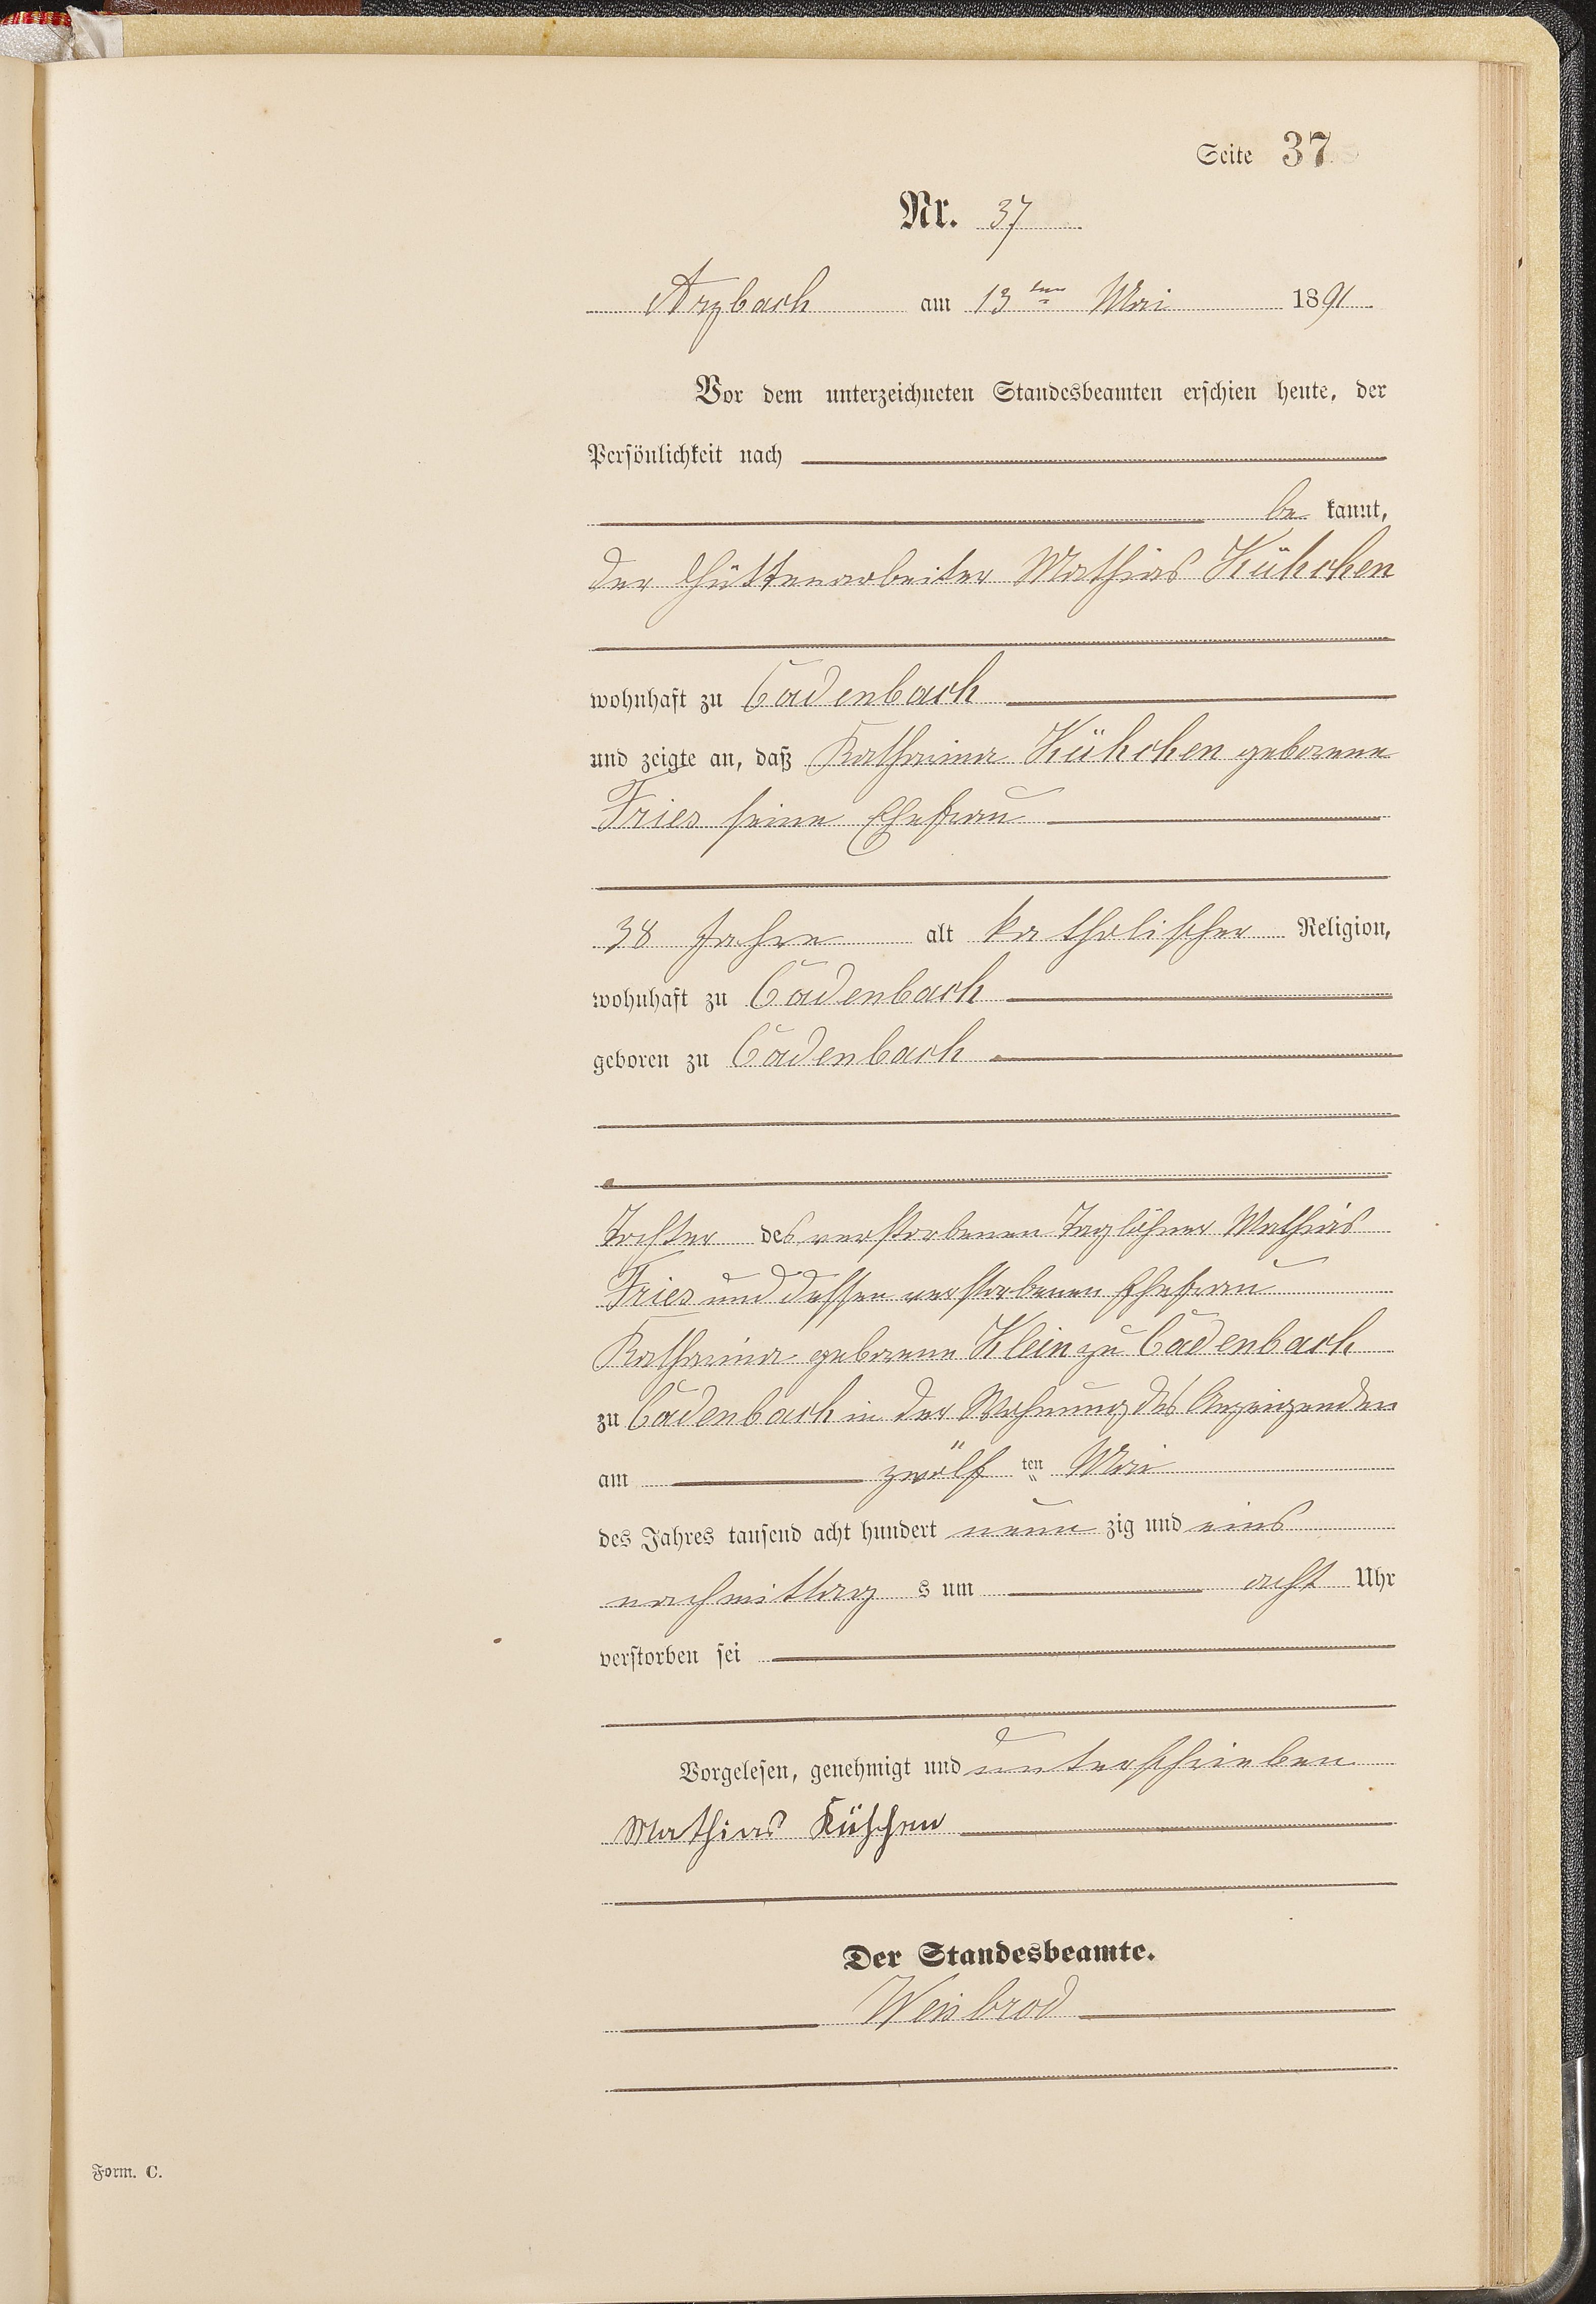 Seite 37
Nr. 37
Arzbach am 13ten Mai 1891
Vor dem unterzeichneten Standesbeamten erschien heute, der
Persönlichkeit nach
be kannt,
der Hüttenarbeiter Mathias Kühchen
wohnhaft zu Cadenbach
und zeigte an, daß Katharina Kühchen geborene
Fries seine Ehefrau
38 Jahre alt katholischer Religion,
wohnhaft zu Cadenbach
geboren zu Cadenbach
Tochter des verstorbenen Taglöhner Mathias
Fries und dessen verstorbenen Ehefrau
Katharina geborene Klein zu Cadenbach
zu Cadenbach in der Wohnung des Anzeigenden
am zwölf ten Mai
des Jahres tausend acht hundert neun zig und eins
nachmittag s um acht Uhr
verstorben sei
Vorgelesen, genehmigt und unterschrieben
Mathias Kühchen
Der Standesbeamte.
Weisbrod
Form. C.